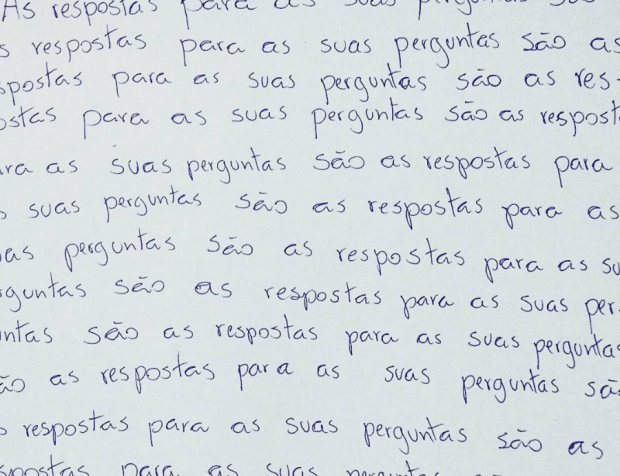 As respostas para as suas
s respostas para as suas perguntas são as
spostas para as suas perguntas são as res-
ostas para as suas perguntas são as respost
ra as suas perguntas são as respostas para
s suas perguntas são as respostas para as
as perguntas são as respostas para as su
rguntas são as respostas para as suas per-
ntas são as respostas para as suas pergunta
ão as respostas para as suas perguntas sã
s respostas para as suas perguntas são as
spostas para as suas